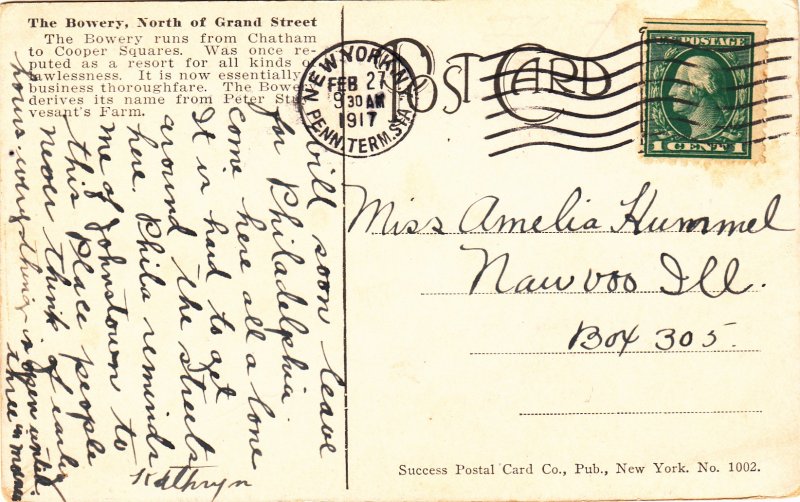 The Bowery, North of Grand Street
The Bowery runs from Chatham
to Cooper Squares. Was once re-
puted as a resort for all kinds o
lawlessness. It is now essentially
business thoroughfare. The Bower
derives its name from Peter Stuy
vesant's Farm.
POST CARD
NEW YORK, N.Y.
FEB 27
9 30 AM
1917
PENN. TERM. STA.
U.S. POSTAGE
1 CENT 1
Miss Amelia Hummel
Nauvoo Ill.
Box 305.
Will soon leave
for Philadelphia.
come here all alone
It is hard to get
around the streets
here. Phila reminds
me of Johnstown to
this place people
never think of early
hours. everything is open until
three in morn
Kathryn
Success Postal Card Co., Pub., New York. No. 1002.